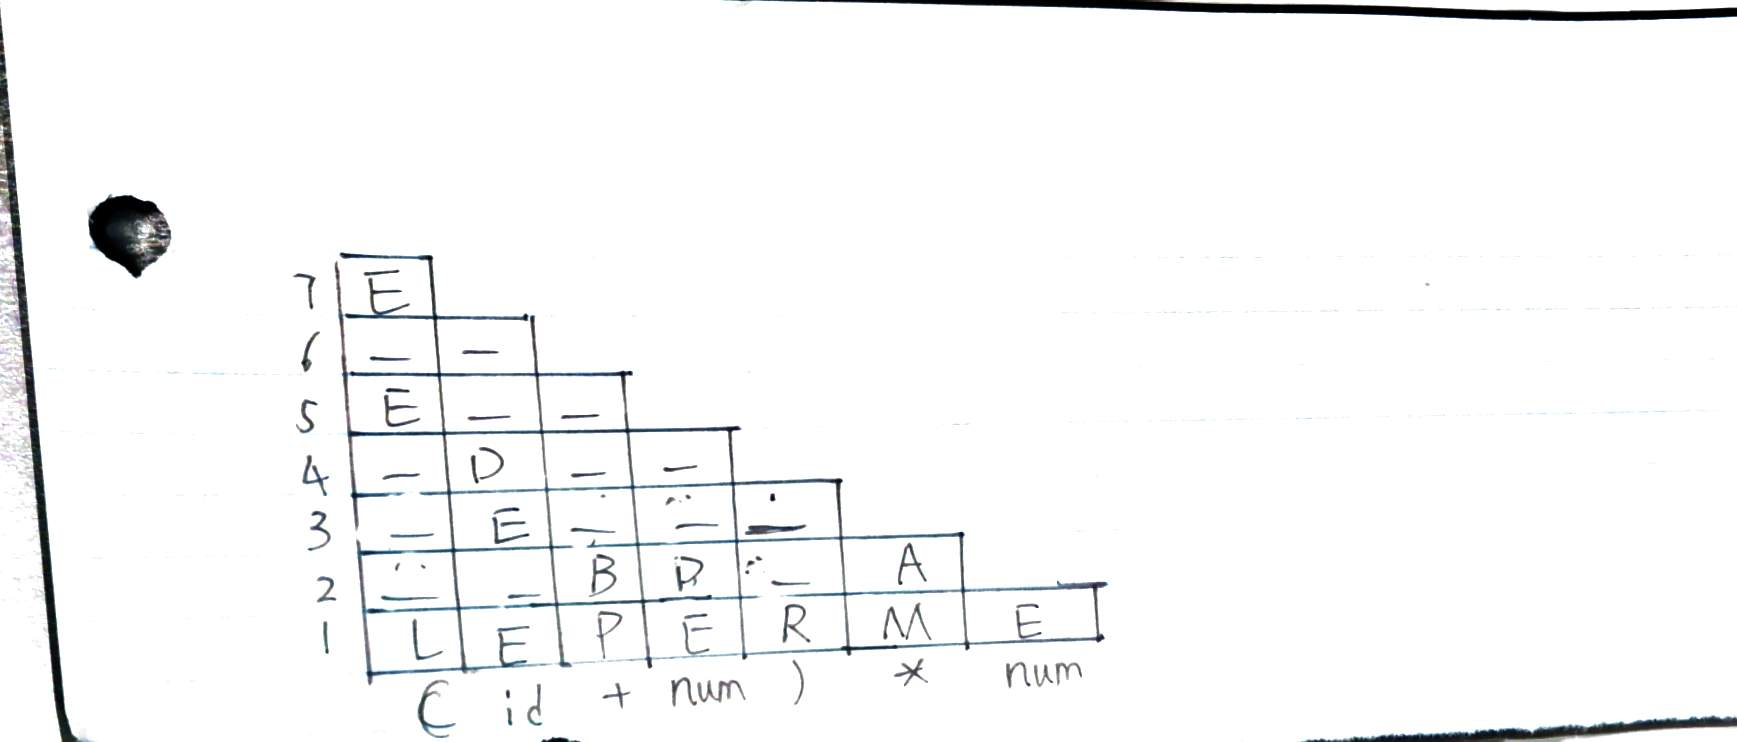 7 E
6 — —
5 E — —
4 — D — —
3 — E — — —
2 — — B D — A
1 L E P E R M E
( id + num ) * num